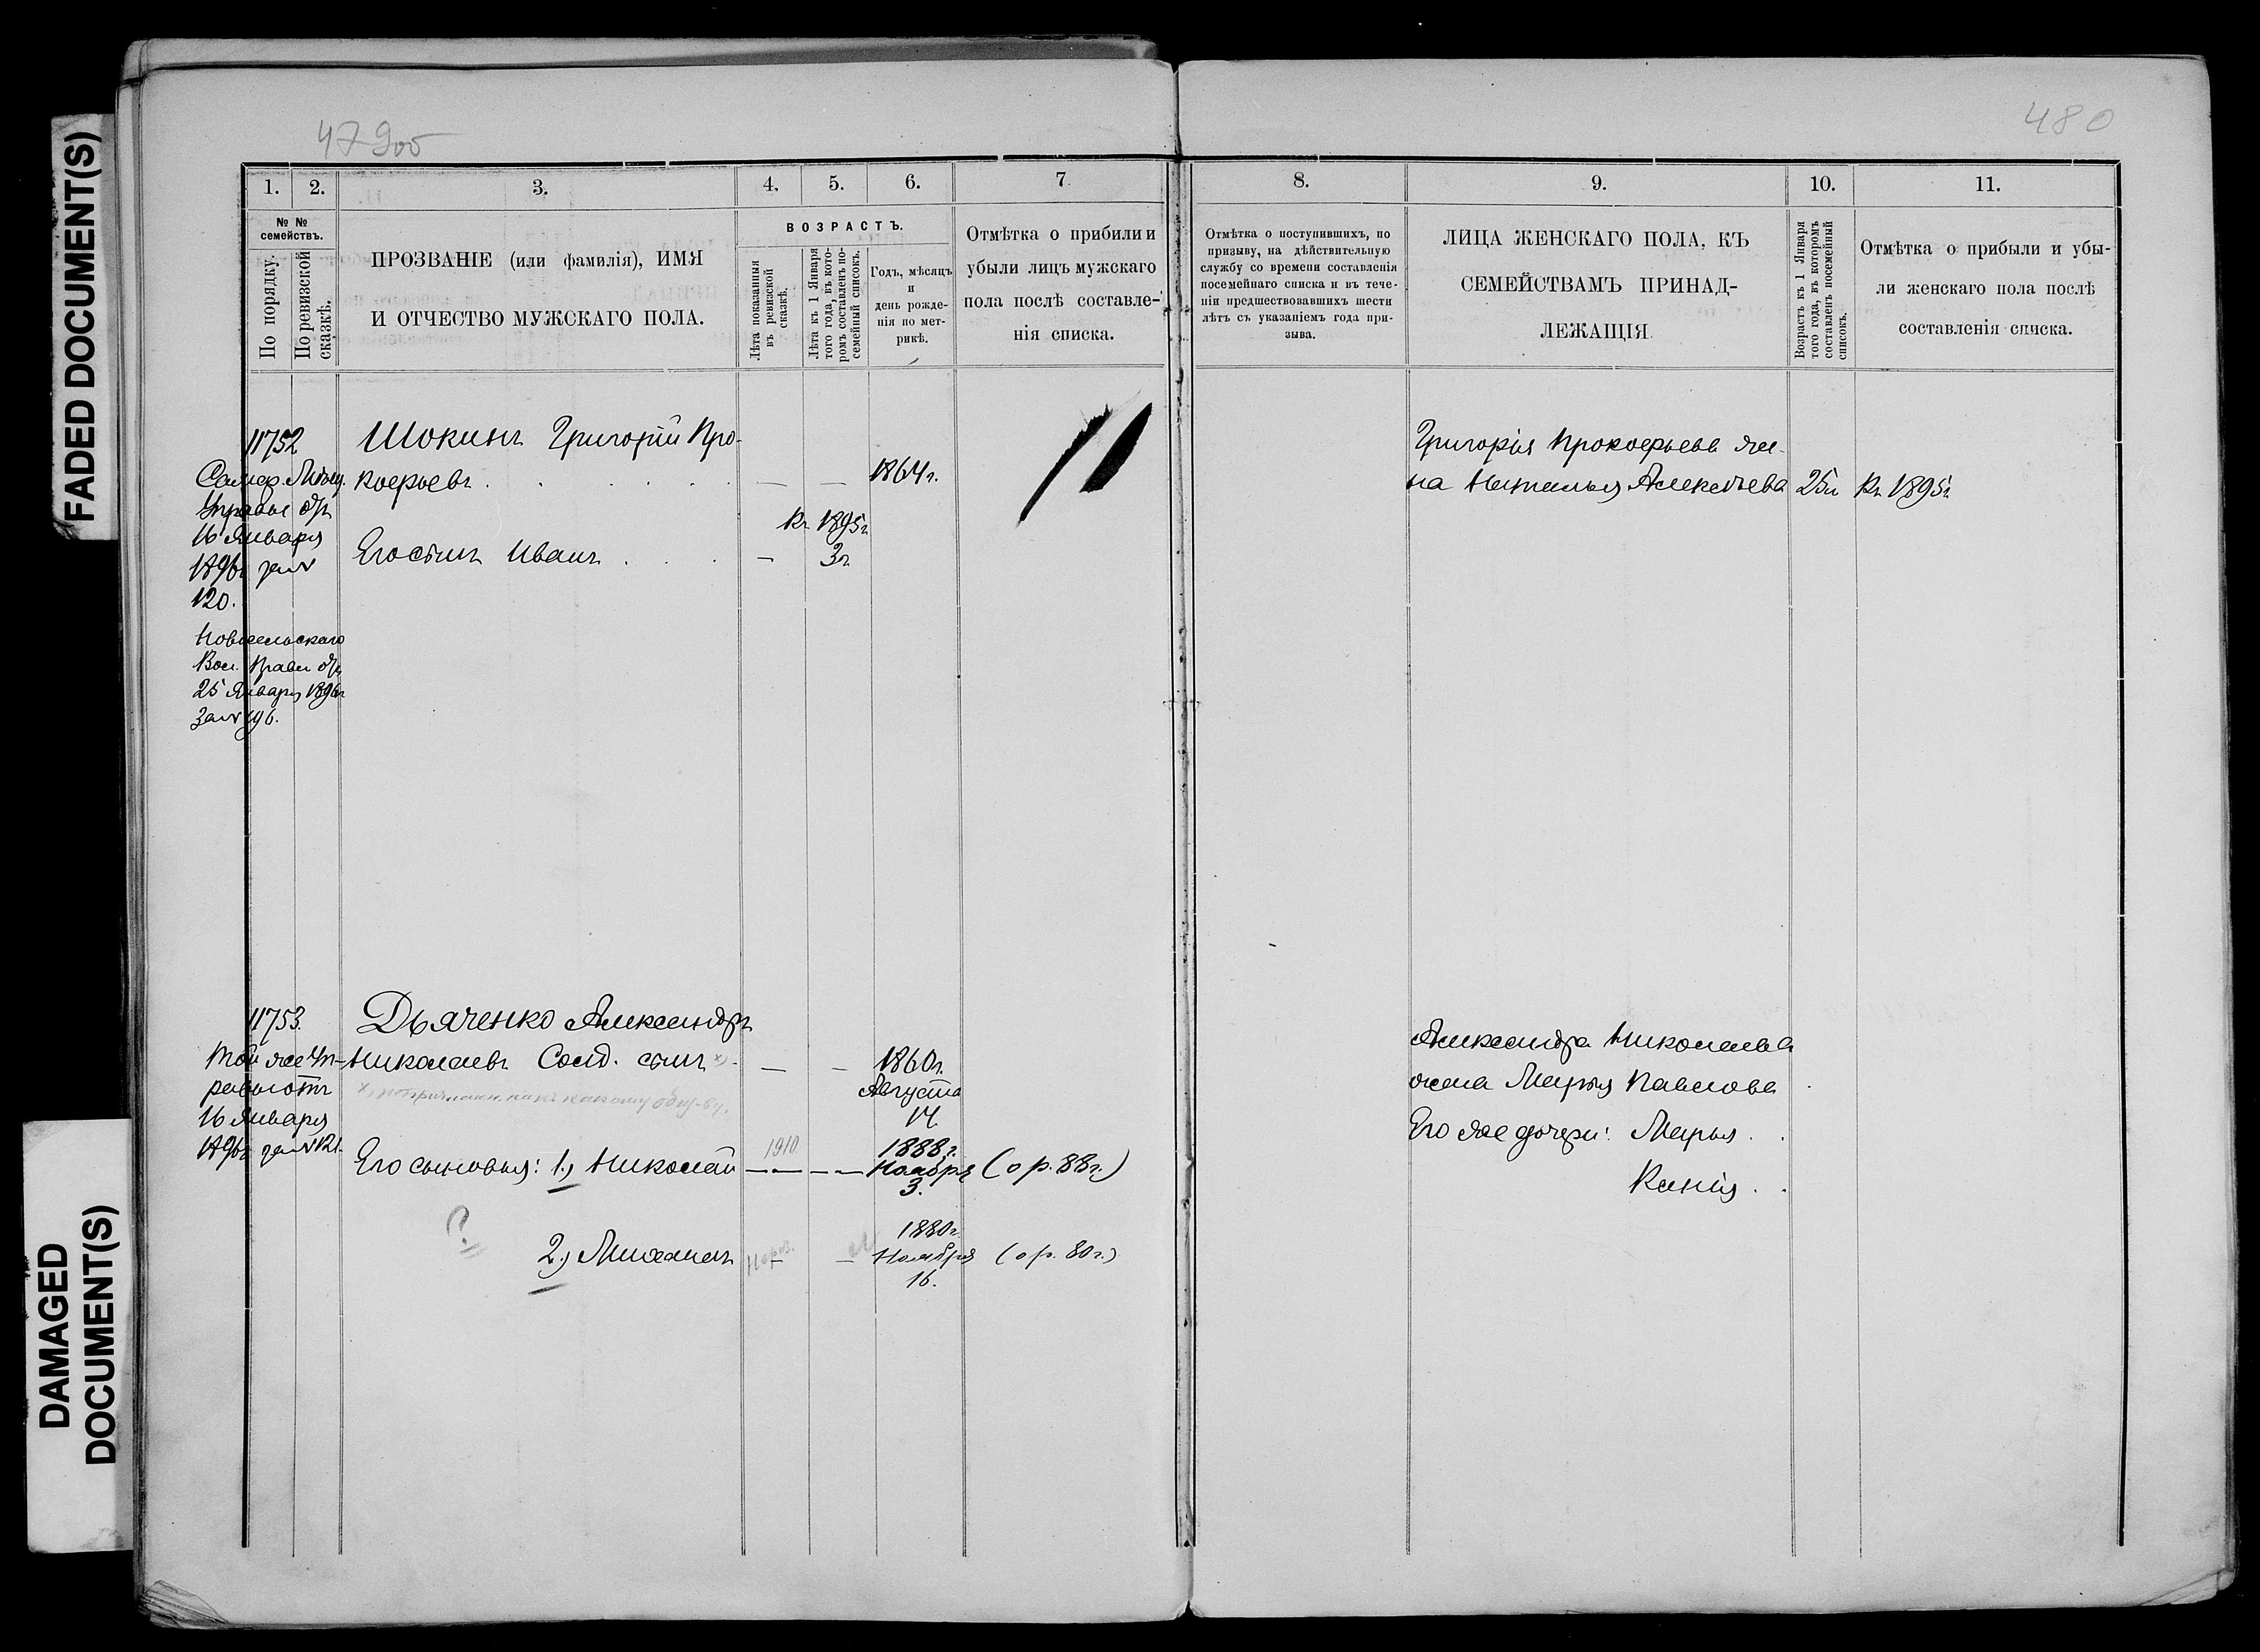 FADED DOCUMENT(S)
DAMAGED
DOCUMENT(S)
479об
480
1.
2.
3.
4.
5.
6.
7.
8.
9.
10.
11.
№ №
семействъ.
По порядку.
По ревизской
сказкѣ.
ПРОЗВАНІЕ (или фамилія), ИМЯ
И ОТЧЕСТВО МУЖСКАГО ПОЛА.
ВОЗРАСТЪ.
Лѣта показанныя
въ ревизской
сказкѣ.
Лѣта къ 1 Января
того года, въ кото-
ромъ составленъ по-
семейный списокъ.
Годъ, мѣсяцъ
и
день рожде-
нія по мет-
рикѣ.
Отмѣтка о прибыли и
убыли лицъ мужскаго
пола послѣ составле-
нія списка.
Отмѣтка о поступившихъ, по
призыву, на дѣйствительную
службу со времени составленія
посемейнаго списка и въ тече-
ніи предшествовавшихъ шести
лѣтъ съ указаніемъ года при-
зыва.
ЛИЦА ЖЕНСКАГО ПОЛА, КЪ
СЕМЕЙСТВАМЪ ПРИНАД-
ЛЕЖАЩІЯ.
Возрастъ къ 1 Января
того года, въ которомъ
составленъ посемейный
списокъ.
Отмѣтка о прибыли и убы-
ли женскаго пола послѣ
составленія списка.
11752
Самар. Мѣщ.
Управы отъ
16 Января
1896г за №
120.
Новосельскаго
Вол. Правл отъ
25 Января 1896г
За № 196.
Шокинъ Григорій Про-
кофьевъ
1864г.
Къ 1895г
Его сынъ Иванъ
3г.
Григорія Прокофьева же-
на Наталья Алексѣева 25л Къ 1895г
11753.
Той же Уп-
равы отъ
16 Января
1896г за № 121.
Дьяченко Александръ
Николаевъ Солд. сынъ х)
1860г.
Августа
14.
Его сыновья: 1.) Николай
1910
1888г.
Ноября
3.
(о р. 88г.)
?
2.) Михаилъ
1880г.
Ноября
16.
(о р. 80г.)
Александра Николаева
жена Марья Павлова
Его же дочери: Марья